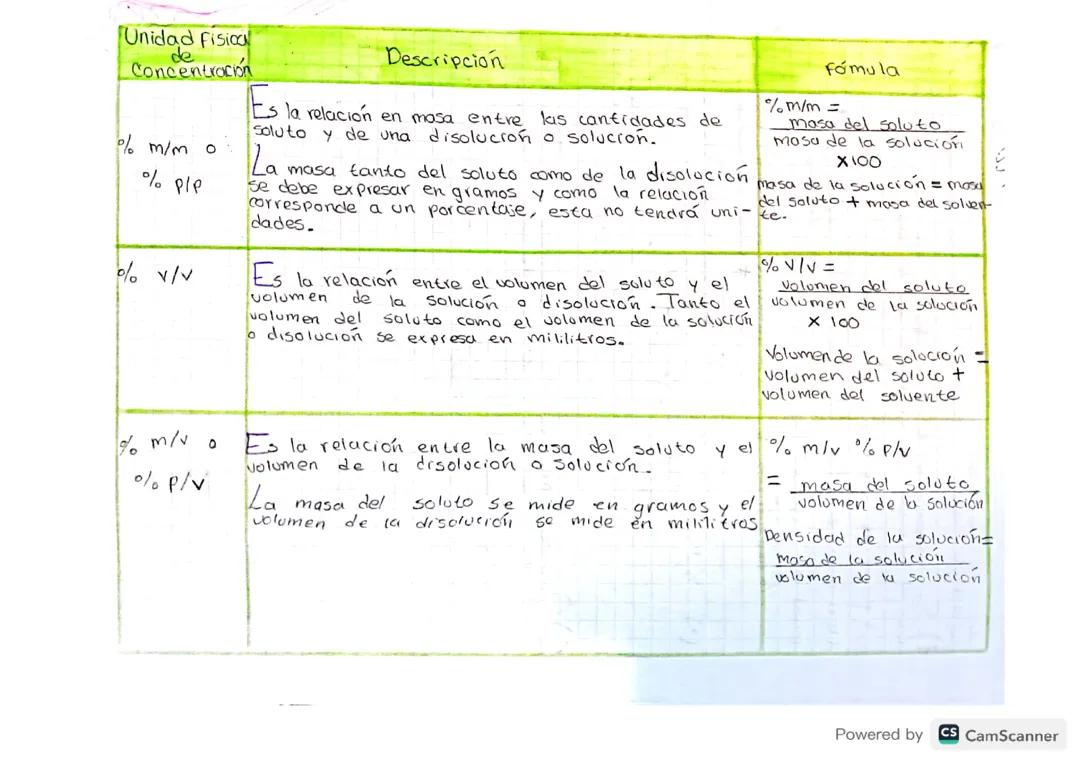 Unidad Física
de
Concentración
Descripción
Fómula
% m/m o
% p/p
Es la relación en masa entre las cantidades de
soluto y de una disolución o solución.
La masa tanto del soluto como de la disolución
se debe expresar en gramos y como la relación
corresponde a un porcentaje, esta no tendrá uni-
dades.
% m/m =
masa del soluto
masa de la solución
X100
masa de la solución = masa
del soluto + masa del solven-
te.
% v/v
Es la relación entre el volumen del soluto y el
volumen de la solución o disolución. Tanto el
volumen del soluto como el volumen de la solución
o disolución se expresa en mililitros.
% V/V =
volumen del soluto
volumen de la solución
X 100
Volumen de la solución =
volumen del soluto +
volumen del solvente
% m/v o
% p/v
Es la relación entre la masa del soluto y el
volumen de la disolución o solución.
La masa del soluto se mide en gramos y el
volumen de la disolución se mide en mililitros
% m/v % p/v
= masa del soluto
volumen de la solución
Densidad de la solución=
Masa de la solución
volumen de la solución
Powered by CS CamScanner